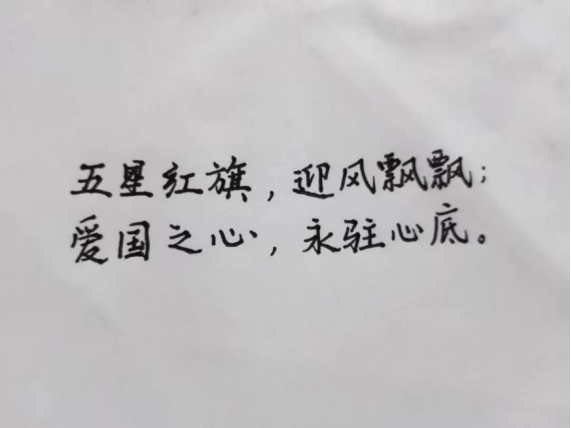 五星红旗，迎风飘飘；
爱国之心，永驻心底。